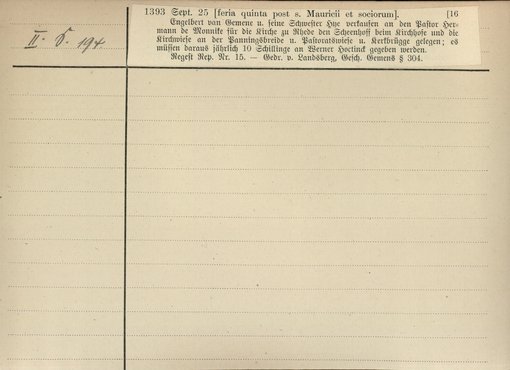 II. S. 194
1393 Sept. 25 [feria quinta post s. Mauricii et sociorum]. [16
Engelbert van Gemene u. seine Schwester Hye verkaufen an den Pastor Her-
mann de Monnike für die Kirche zu Rhede den Schernhoff beim Kirchhofe und die
Kirchwiese an der Panningsbreide u. Pastoratswiese u. Kerkbrügge gelegen; es
müssen daraus jährlich 10 Schillinge an Werner Hoetinck gegeben werden.
Regest Rep. Nr. 15. — Gedr. v. Landsberg, Gesch. Gemens § 304.